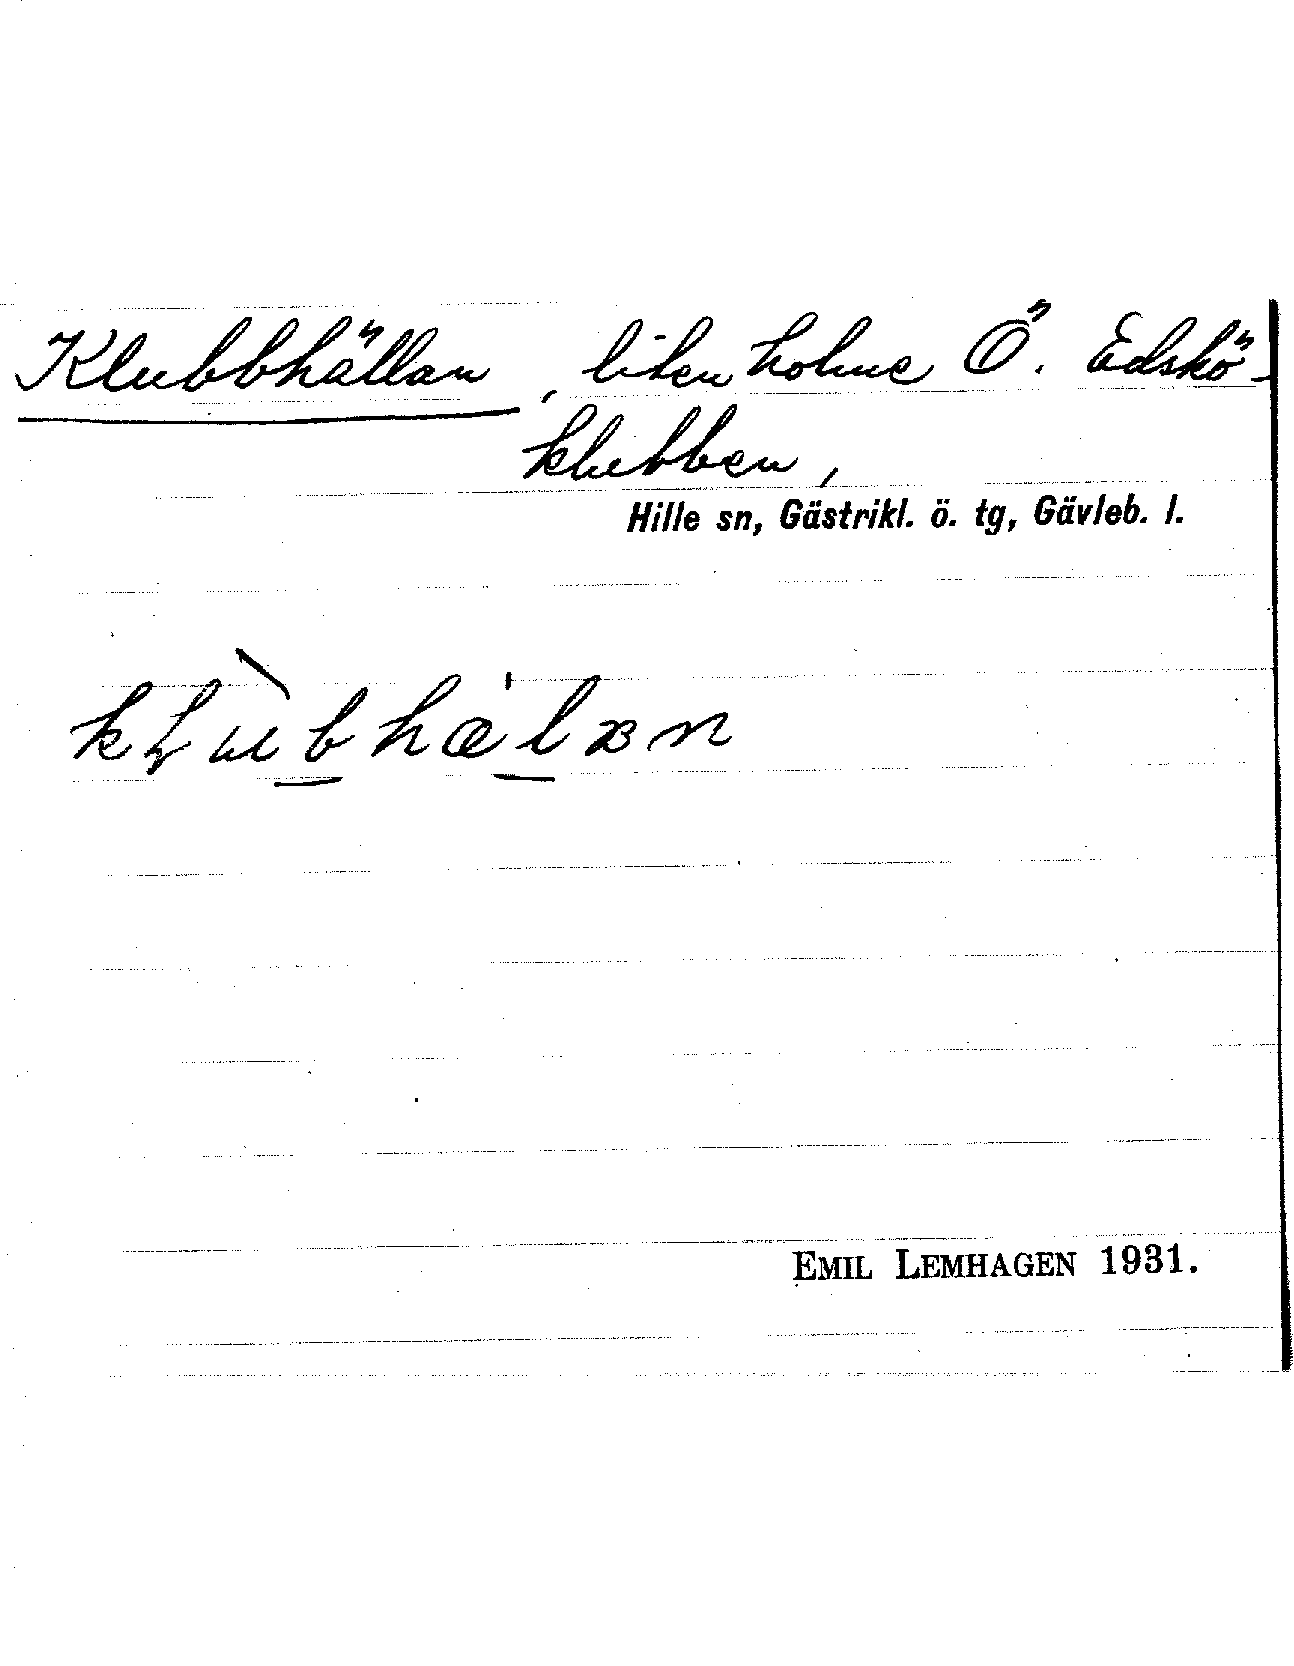 Klubbhällan, liten holme Ö. Edskö-
klubben,
Hille sn, Gästrikl. ö. tg, Gävleb. l.
EMIL LEMHAGEN 1931.